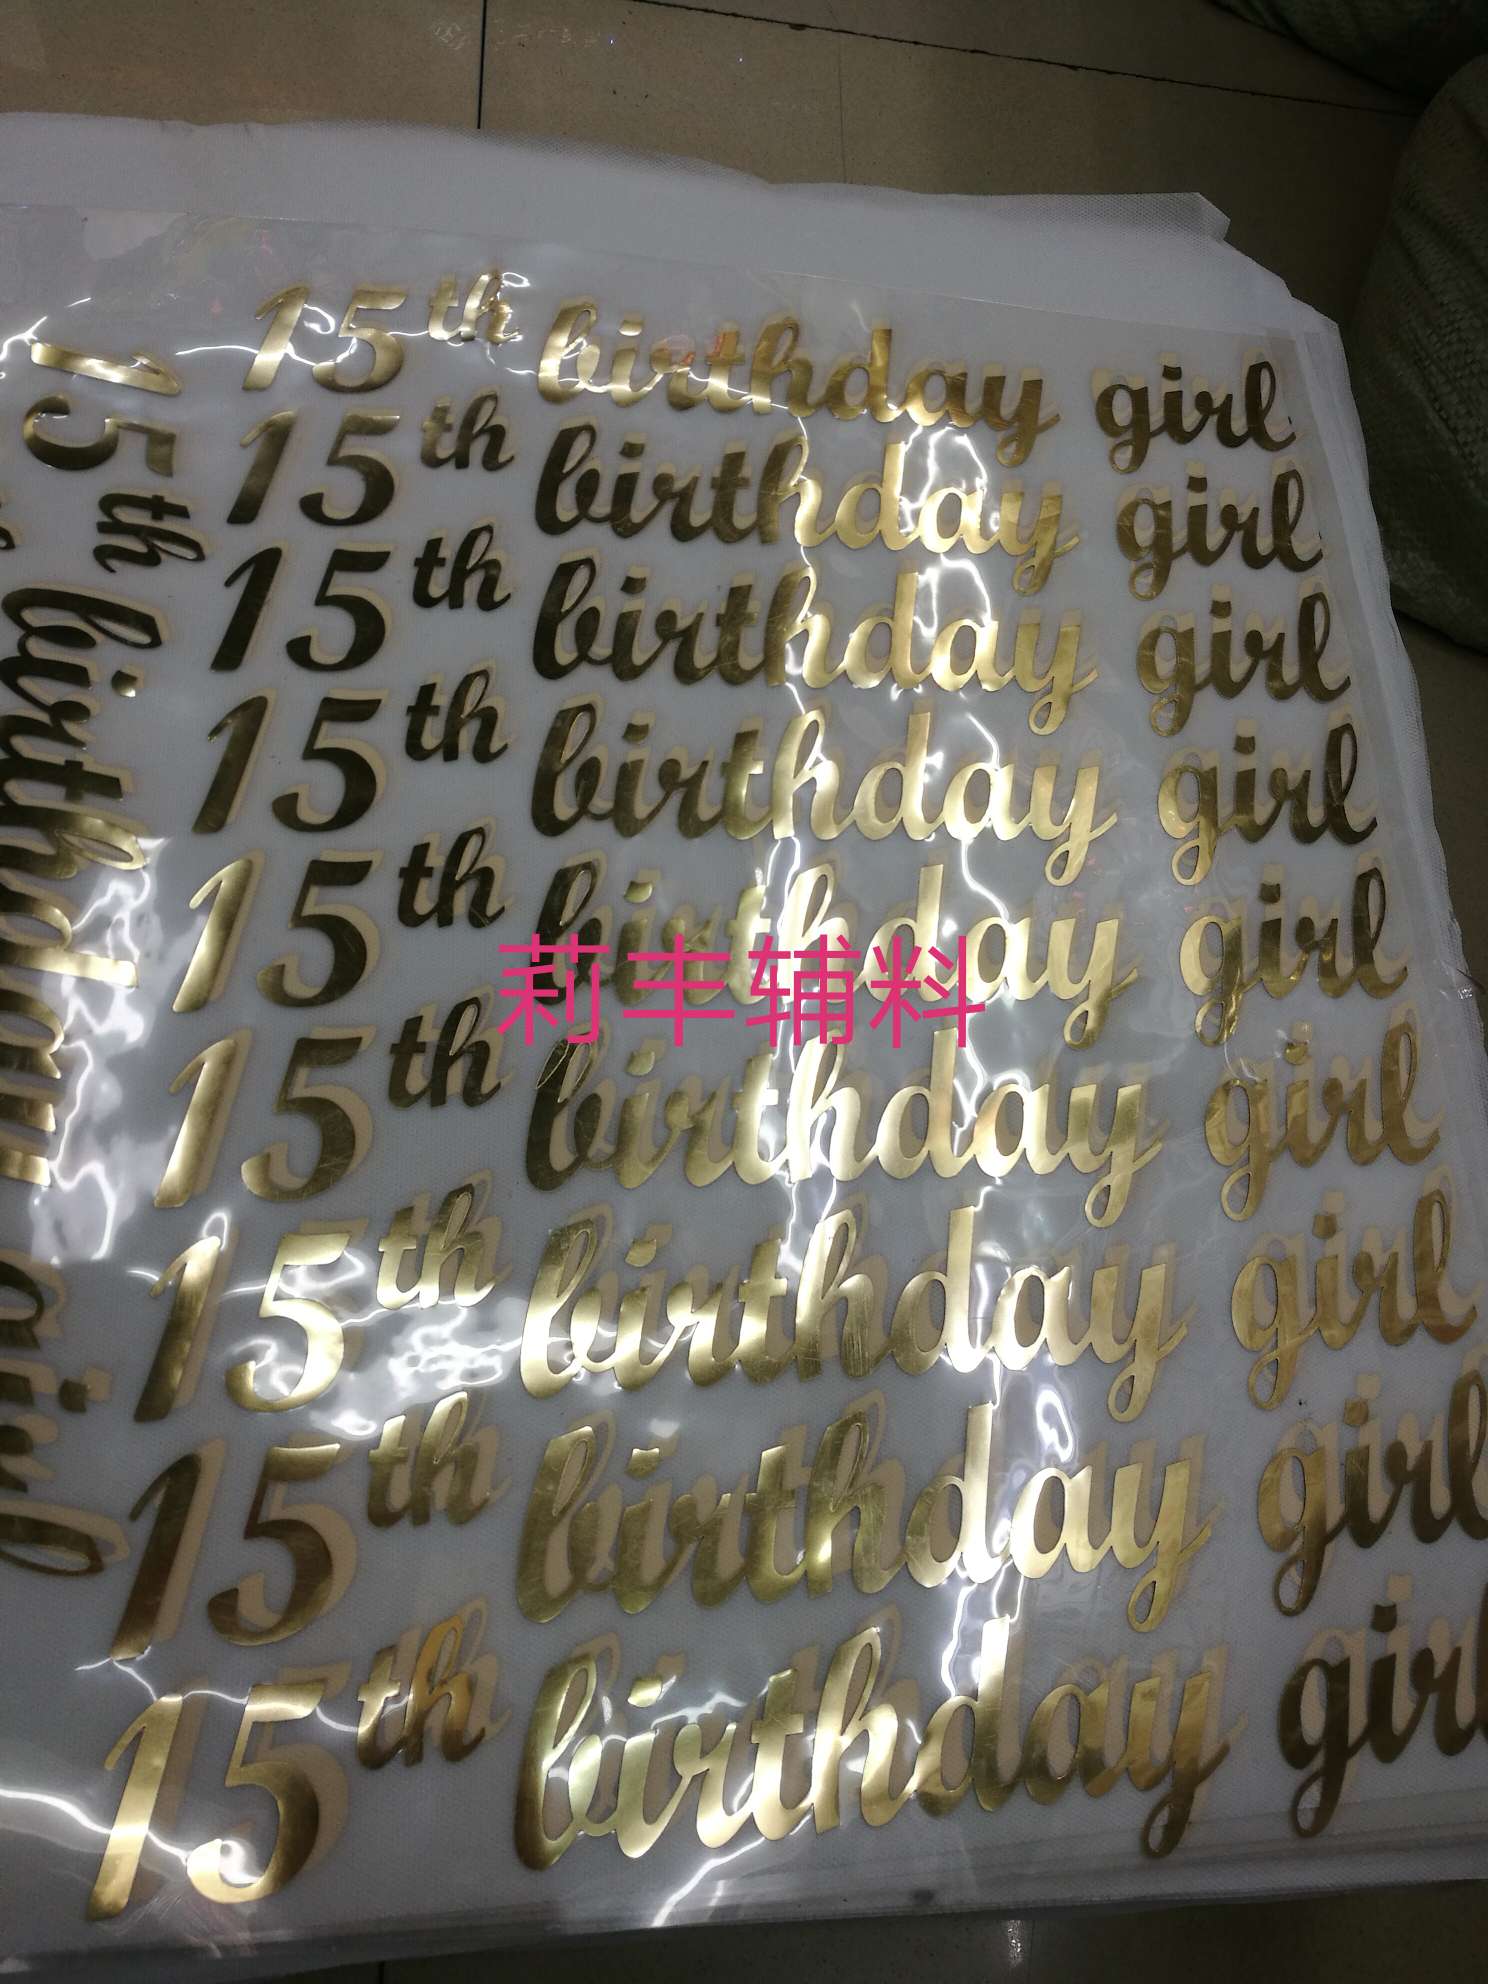 15th birthday girl
15th birthday girl
15th birthday girl
15th birthday girl
15th birthday girl
莉丰辅料
15th birthday girl
15th birthday girl
15th birthday girl
15th birthday girl
15th birthday girl